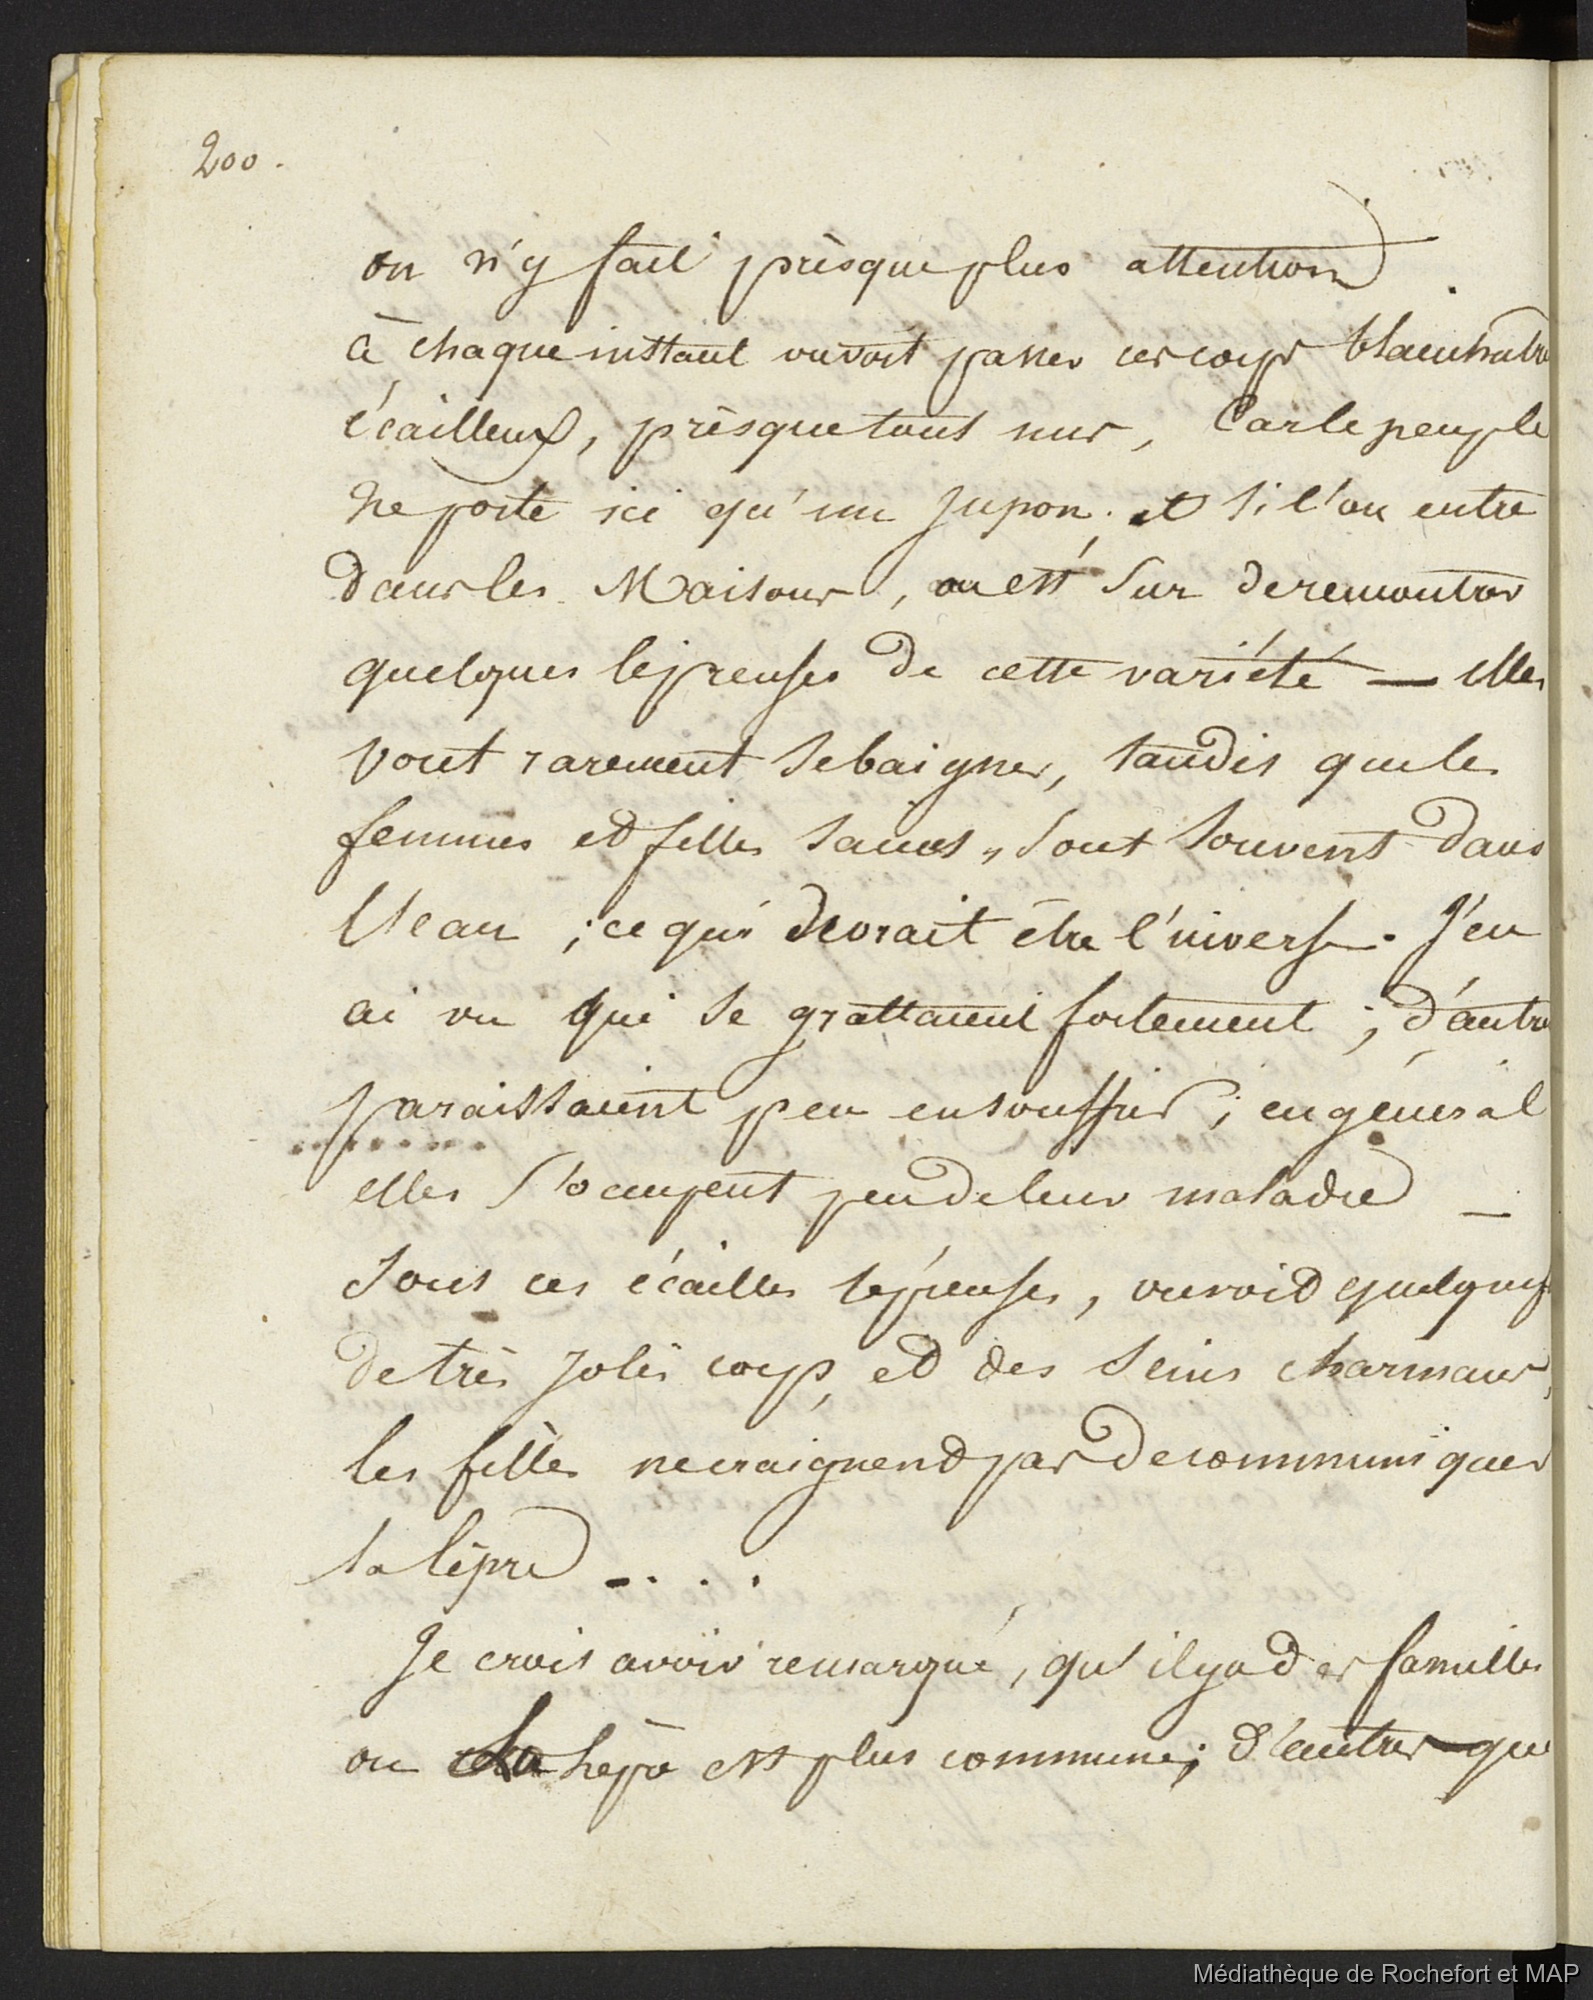 200.
on n'y fait prèsque plus attention.
à chaque instant on voit passer ces corps blanchatre
écailleux, prèsque tout nus, Car le peuple
ne porte ici qu'un Jupon, et si l'on entre
dans les Maisons, on est sur de rencontrer
quelques lépreuses de cette variété — elles
vont rarement se baigner, tandis que les
femmes et filles saines, sont souvent dans
l'eau ; ce qui devrait être l'inverse. J'en
ai vu qui se grattaient fortement ; d'autre
paraissaient peu en souffrir ; en général
elles s'occupent peu de leur maladie —
sous ces écailles lépreuses, on voit quelques
de très Jolis corps, et des seins charmans,
les filles ne craignent pas de communiquer
la lèpre - . . .
Je crois avoir remarqué, qu'il y a des familles
ou la lèpre est plus commune ; d'autres que
Médiathèque de Rochefort et MAP